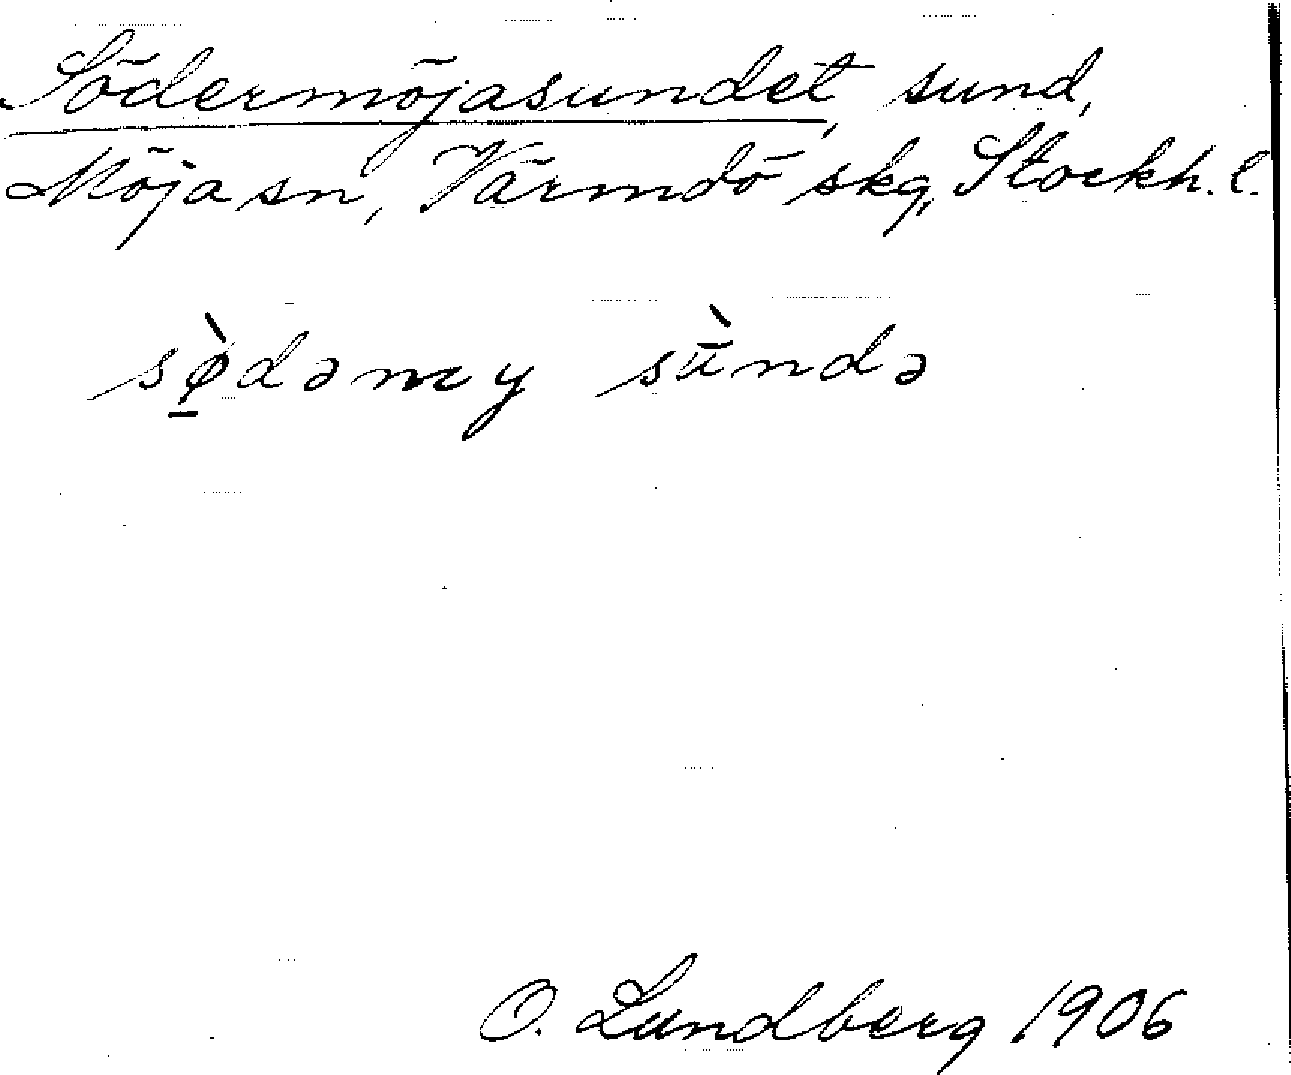 Södermöjasundet, sund,
Möja sn, Värmdö skg, Stockh. l.
sø̱̀dəmy sǜndə
O. Lundberg 1906